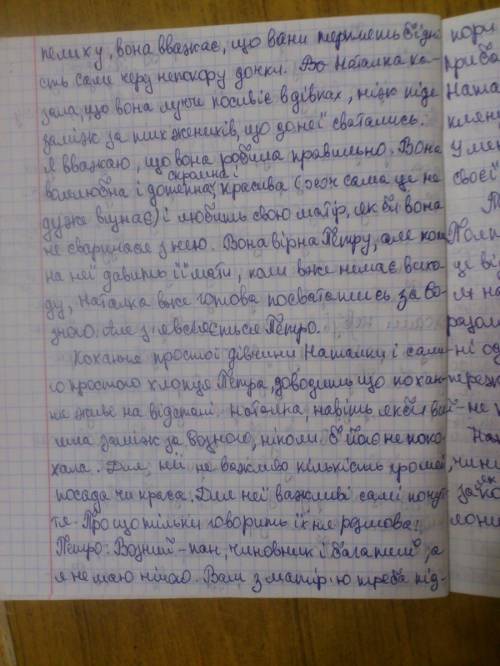 пелиху, вона вважає, що вони терплять бідні
сть саме через непокору дочки. Бо Наталка ка-
зала, що вона лучше посивіє в дівках, ніж піде
заміж за тих женихів, що до неї сватались.
Я вважаю, що вона робила правильно. Вона
скромна і
волелюбна і дотепна, красива (хоч сама це не
дуже визнає) і любить свою матір, як би вона
не сварилася з нею. Вона вірна Петру, але коли
на неї давить її мати, коли вже немає вихо-
ду, Наталка вже готова посвататись за Во-
зного. Але з'являється Петро.
Кохання простої дівчини Наталки і сами-
го простого хлопця Петра, доводить що кохан-
ня живе на відстані. Наталка, навіть якби вий
шла заміж за возного, ніколи б його не поко-
хала. Для неї не важливо кількість грошей
посада чи краса. Для неї важливі самі почут
тя. Про що тільки говорить їхня розмова:
Петро: Возний - пан, чиновник і багатий, а
я не маю нічого. Вам з матір'ю треба під-
пори
приба
Ната
кляну
У мен
своєї
Полт
це ві
ля на
разом
ні од
переж
- не
На
чині
як
за ко
лони